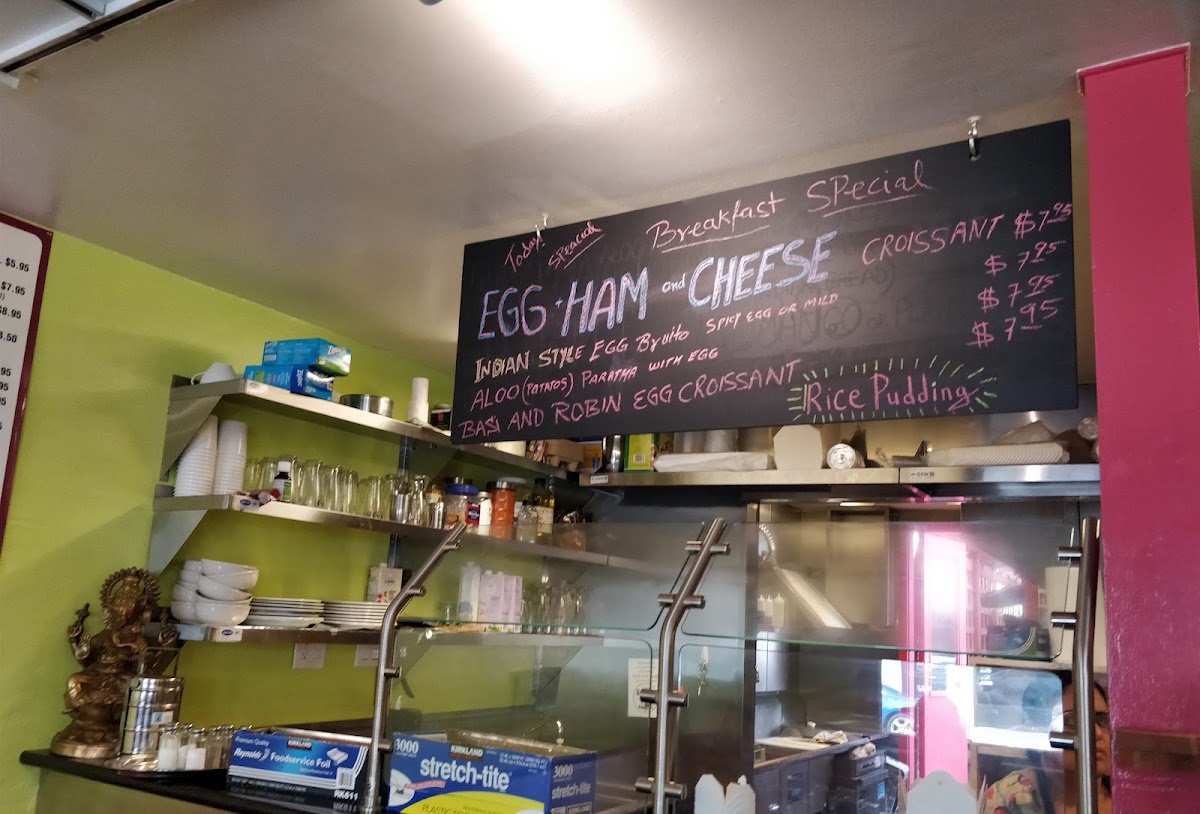 $5.95
$7.95
$8.95
3.50
.95
95
95
Today!
SPEACIAL
Breakfast SPecial
EGG + HAM and CHEESE CROISSANT $7.95
INDIAN STYLE EGG Bruito SPICY EGG OR MILD $7.95
ALOO (POTATOS) PARATHA WITH EGG $7.95
BASI AND ROBIN EGG CROISSANT $7.95
Rice Pudding
Premium Quality
Reynolds
Foodservice Foil
KIRKLAND
RK611
3000
KIRKLAND
stretch-tite
PLASTIC
3000
stretch-tite